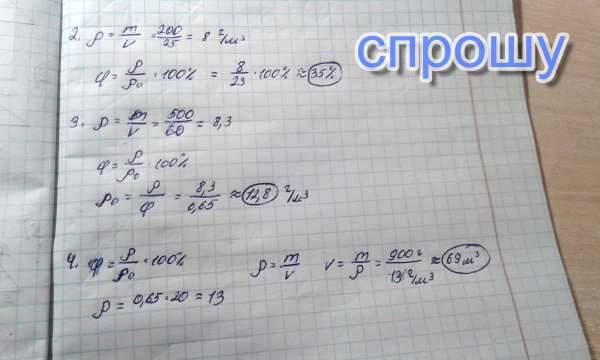 2. ρ = m/v = 200/25 = 8 г/м³
спрошу
φ = ρ/ρ₀ · 100% = 8/23 · 100% ≈ 35%
3. ρ = m/v = 500/60 = 8,3
φ = ρ/ρ₀ · 100%
ρ₀ = ρ/φ = 8,3/0,65 ≈ 12,8 г/м³
4. φ = ρ/ρ₀ · 100% ρ = m/v v = m/ρ = 900 г/13 г/м³ ≈ 69 м³
ρ = 0,65 · 20 = 13